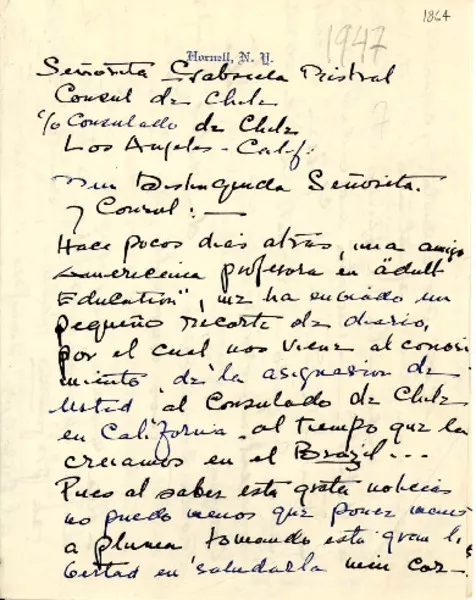 1864
1947
7
Hornell, N. Y.
Señorita Gabriela Mistral
Consul de Chile
c/o Consulado de Chile
Los Angeles - Calif:
Muy Distinguida Señorita.
y Consul: —
Hace pocos dias atrás, una amiga
Americana profesora en "adult
Education", me ha enviado un
pequeño recorte de diario,
por el cual nos viene al conoci
miento, de la asignasion de
Usted al Consulado de Chile
en California, al tiempo que la
creiamos en el Brazil...
Pues al saber esta grata noticia
no puedo menos que poner mano
a pluma tomando esta gran li
bertad en saludarla muy cor-